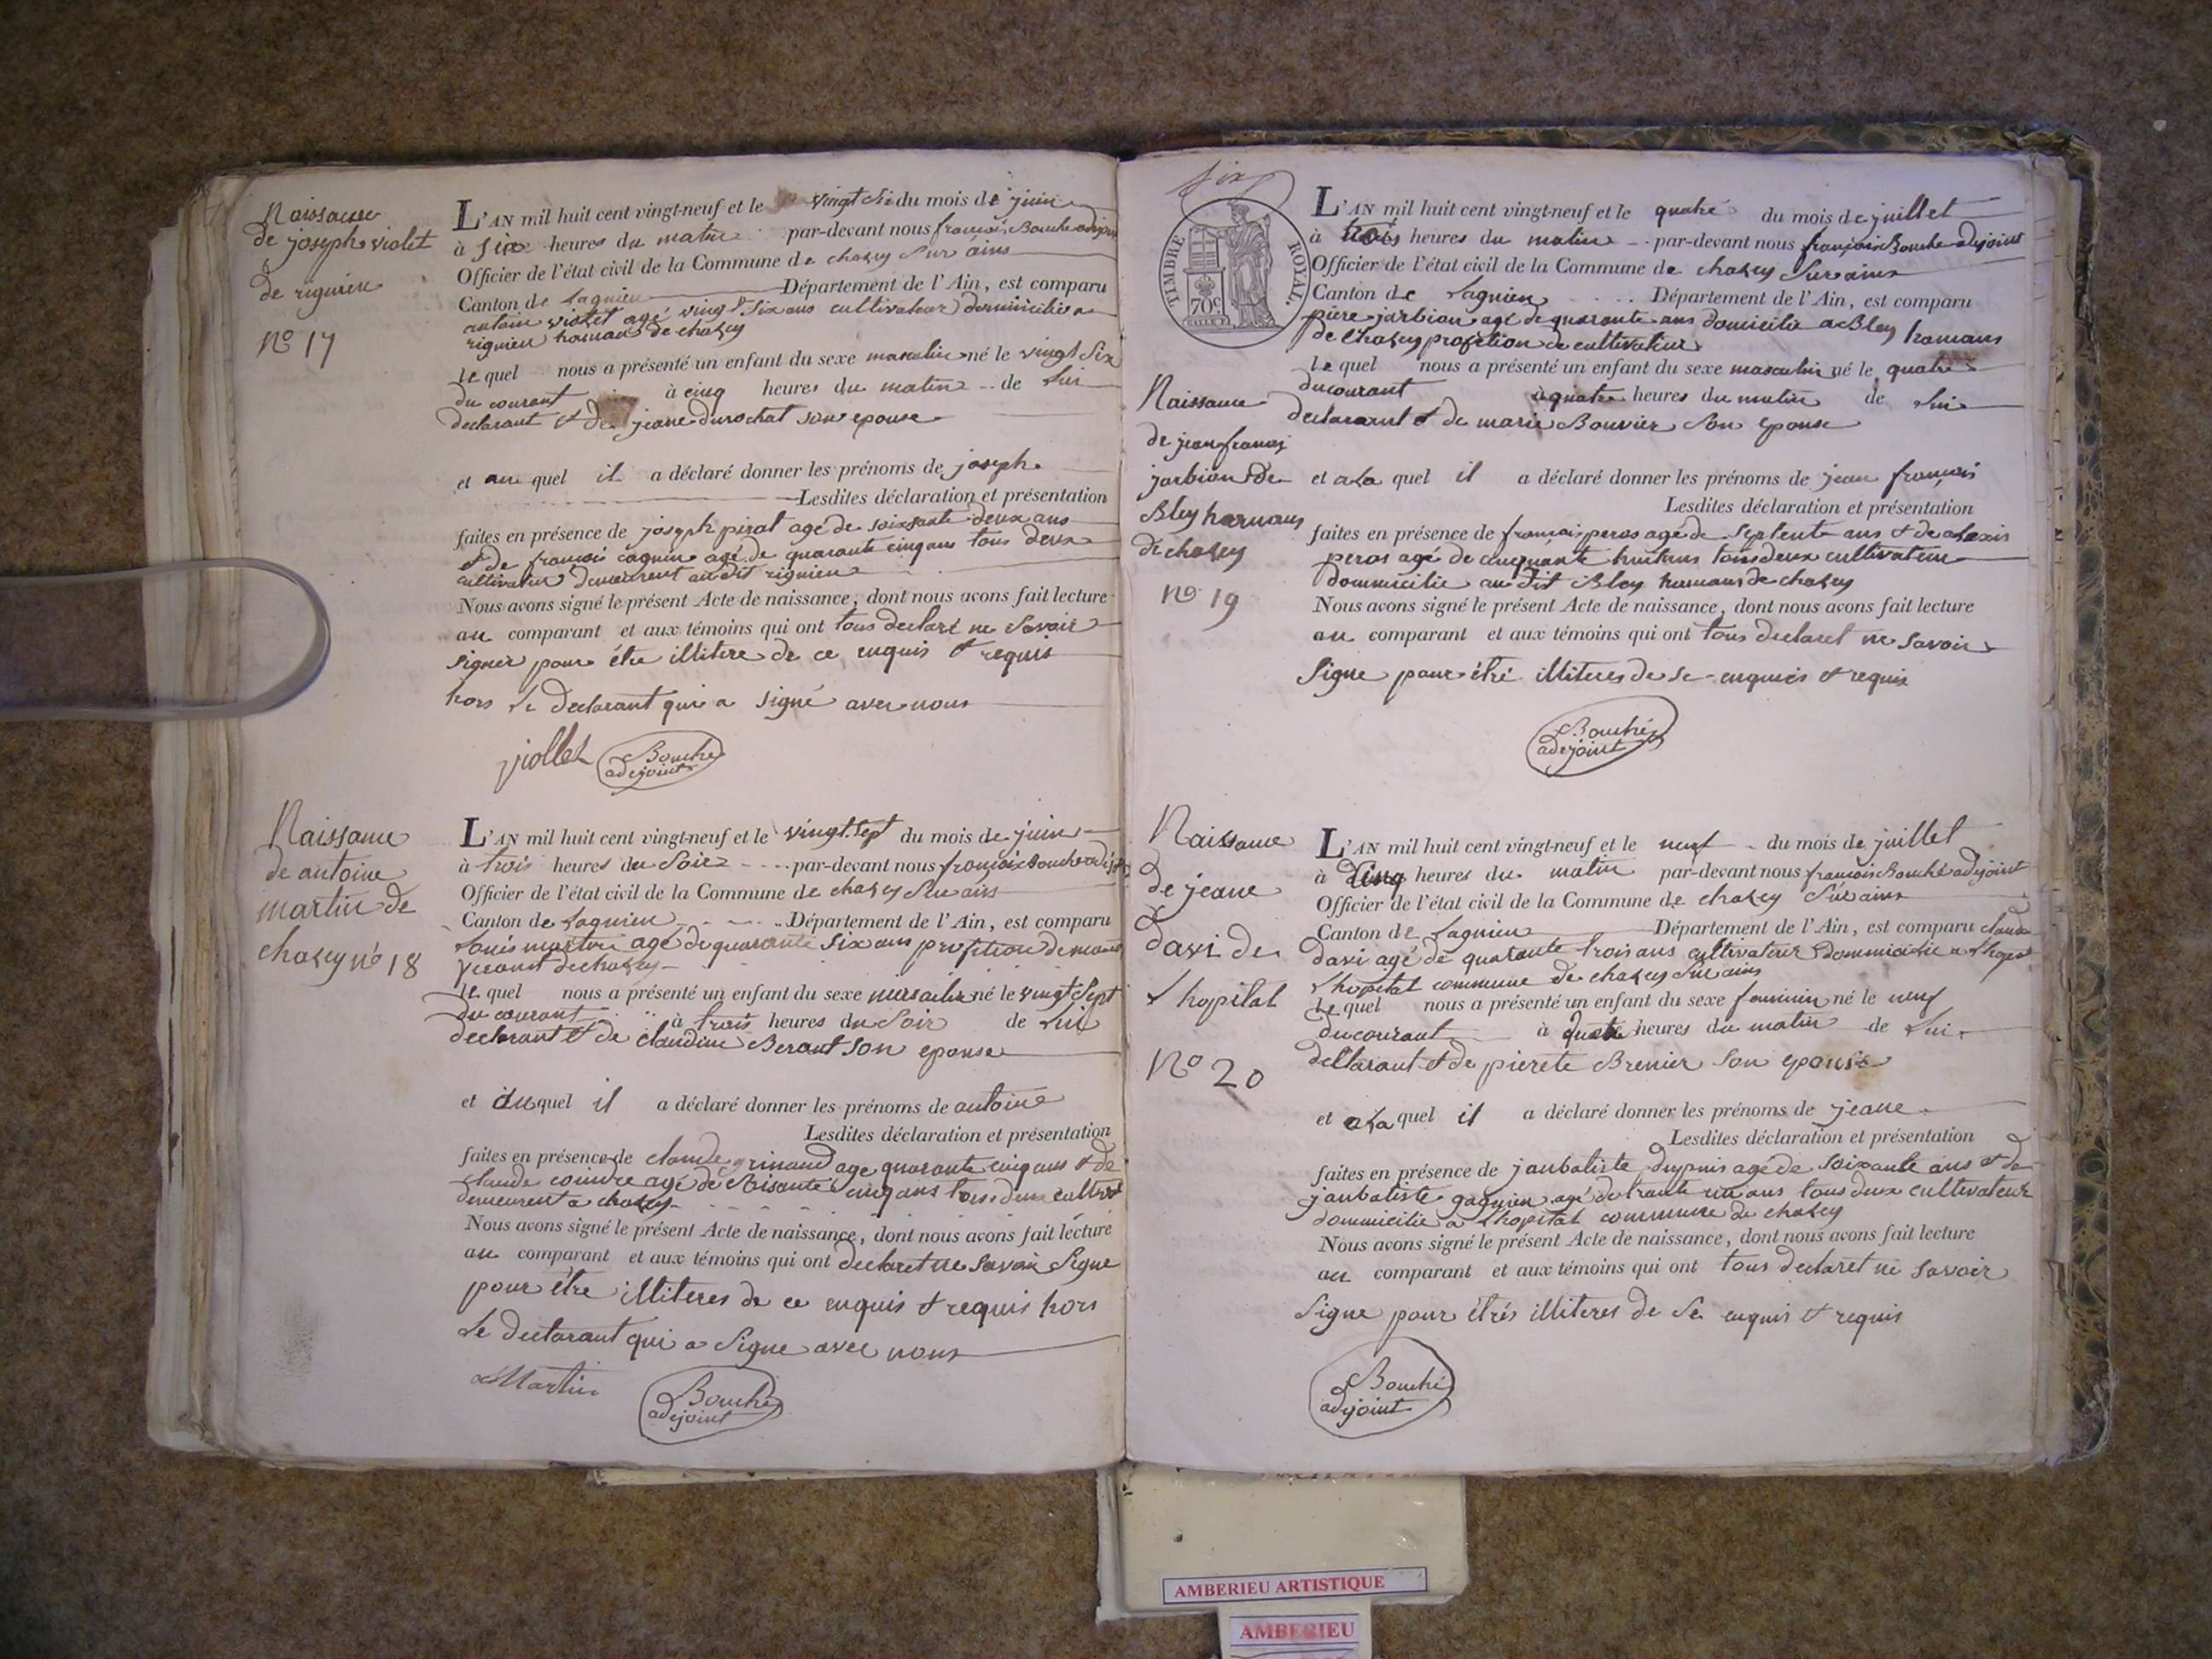 Naissance
de joseph violet
de rignieu
No 17
L'AN mil huit cent vingt-neuf et le vingt six du mois de juin
à six heures du matin par-devant nous françois Bouche adejoint
Officier de l'état civil de la Commune de chasey sur ains
Canton de Lagnieu Département de l'Ain, est comparu
antoin violet agé vingt six ans cultivateur domicilie a
rignieu hamau de chasey
le quel nous a présenté un enfant du sexe masculin né le vingt six
du courant à cinq heures du matin de lui
declarant et de jeane durochat son epouse
et au quel il a déclaré donner les prénoms de joseph
Lesdites déclaration et présentation
faites en présence de joseph pirat agé de soixsante deux ans
et de francois cagnin agé de quarante cinq ans tous deux
cultivateur demeurent au dit rignieu
Nous avons signé le présent Acte de naissance, dont nous avons fait lecture
au comparant et aux témoins qui ont tous declaré ne savoir
signer pour être illitere de ce enquis et requis
hors le declarant qui a signé avec nous
viollet Bouché
adejoint
Naissance
de antoine
martin de
chasey no 18
L'AN mil huit cent vingt-neuf et le vingt sept du mois de juin
à trois heures du Soir par-devant nous françois Bouche
Officier de l'état civil de la Commune de chasey sur ains
Canton de Lagnieu Département de l'Ain, est comparu
Louis martin agé de quarante six ans profition de
de chasey
le quel nous a présenté un enfant du sexe né le vingt sept
du courant à trois heures du Soir de lui
declarant et de claudine Beraut son epouse
et au quel il a déclaré donner les prénoms de antoine
Lesdites déclaration et présentation
faites en présence de claude grinand age quarante cinq ans et de
claude coindre agé de cinq ans tous deux
demeurent a chasey
Nous avons signé le présent Acte de naissance, dont nous avons fait lecture
au comparant et aux témoins qui ont declaret ne savoir Signe
pour être illiteres de ce enquis et requis hors
le declarant qui a Signe avec nous
Martin Bouché
adejoint
six
TIMBRE ROYAL.
70c
L'AN mil huit cent vingt-neuf et le quatre du mois de juillet
à heures du matin par-devant nous françois Bouche adejoint
Officier de l'état civil de la Commune de chasey Sur ains
Canton de Lagnieu Département de l'Ain, est comparu
piere jarbion agé de quarante ans domicilie a Bley hamaus
de Chasey profetion de cultivateur
le quel nous a présenté un enfant du sexe masculin né le quatre
du courant à quatre heures du matin de lui
declarant et de marie Bouvier Son epouse
Naissance
de jean françoi
jarbion de
Bley hamaus
de chasey
no 19
et a la quel il a déclaré donner les prénoms de jean françois
Lesdites déclaration et présentation
faites en présence de françois peros agé de Septente ans et de alexis
peros agé de cinquante huit ans tous deux cultivateur
dommicilie au dit Bley hamaus de chasey
Nous avons signé le présent Acte de naissance, dont nous avons fait lecture
au comparant et aux témoins qui ont tous declaret ne savoir
Signe pour étre illiteres de se enquies et requis
Bouché
adejoint
Naissance
de jeane
davi de
Lhopital
No 20
L'AN mil huit cent vingt-neuf et le neuf du mois de juillet
à cinq heures du matin par-devant nous françois Bouché adejoint
Officier de l'état civil de la Commune de chasey Sur ains
Canton de Lagnieu Département de l'Ain, est comparu claude
davi agé de quarante trois ans cultivateur dommicilie a
Lhopital commune de chasey Sur ains
le quel nous a présenté un enfant du sexe feminin né le neuf
du courant à quatre heures du matin de lui
declarant et de pierete Brenier Son epouse
et a la quel il a déclaré donner les prénoms de jeane
Lesdites déclaration et présentation
faites en présence de janbatiste Dupuis agé de soixante ans et de
janbatiste gagnieu agé de trante un ans tous deux cultivateur
dommicilie a Lhopital commune de chasey
Nous avons signé le présent Acte de naissance, dont nous avons fait lecture
au comparant et aux témoins qui ont tous declaret ne savoir
Signe pour étres illiteres de Se enquis et requis
Bouché
adejoint
AMBERIEU ARTISTIQUE
AMBERIEU